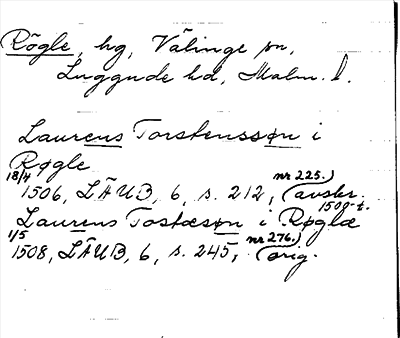 Rögle, hg, Välinge sn,
Luggude hd, Malm. l.
Laurens Torstenssøn i
Røgle
18/4 1506, LÄUB, 6, s. 212, nr 225.) (avskr. 1500-t.
Laurens Tostæsøn i Røglæ
1/5 1508, LÄUB, 6, s. 245, nr 276.) (orig.